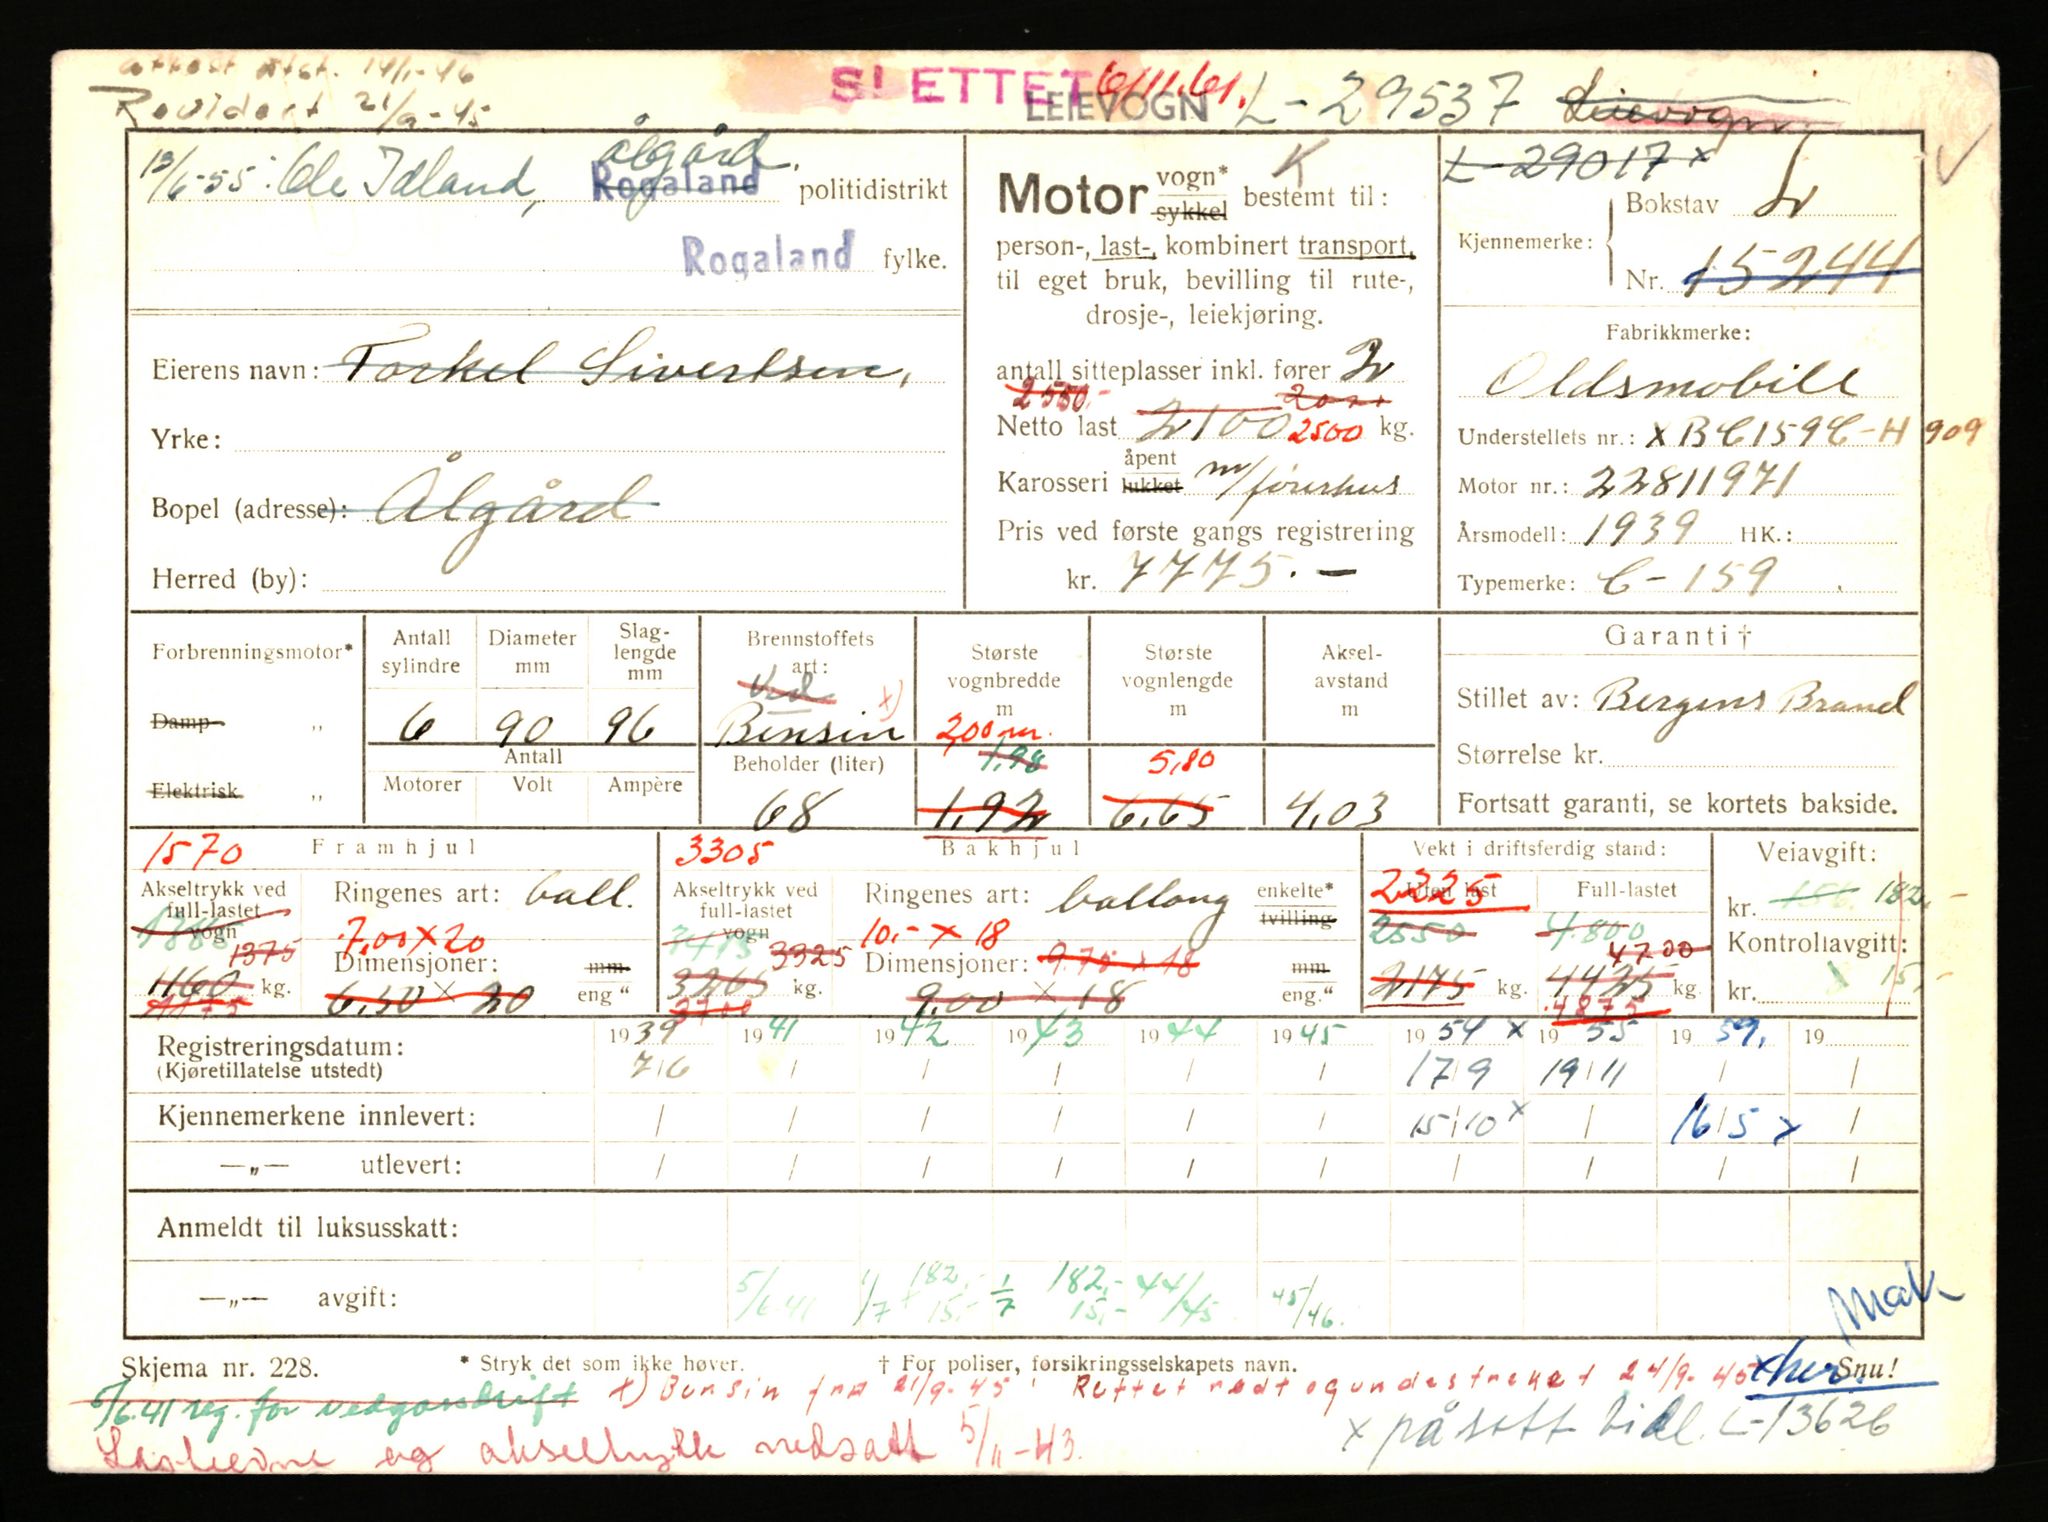 attest utst. 14/1-46
Revidert 21/9-45
SLETTET 6/11.61.
LEIEVOGN L-29537 Leievogn
13/6-55: Ole Idland, Ålgård.
Rogaland politidistrikt
Rogaland fylke.
Eierens navn: Torkel Sivertsen,
Yrke:
Bopel (adresse): Ålgård
Herred (by):
K
Motor vogn* sykkel bestemt til:
person-, last-, kombinert transport,
til eget bruk, bevilling til rute-,
drosje-, leiekjøring.
antall sitteplasser inkl. fører 2
2550.-
Netto last 2100 2500 kg.
Karosseri åpent lukket m/førerhus
Pris ved første gangs registrering
kr. 7775.-
L-29017 x
Kjennemerke: Bokstav L
Nr. 15244
Fabrikkmerke:
Oldsmobile
Understellets nr.: XBC159C-H909
Motor nr.: 22811971
Årsmodell: 1939 HK.:
Typemerke: C-159
Forbrenningsmotor*
Damp- „
Elektrisk „
Antall sylindre
6
Diameter mm
90
Slag-lengde mm
96
Antall
Motorer Volt Ampère
Brennstoffets art:
Ved x)
Bensin
Beholder (liter)
68
Største vognbredde m
2,00 m.
1,98
1,92
Største vognlengde m
5,80
6,65
Aksel-avstand m
4,03
Garanti †
Stillet av: Bergens Brand
Størrelse kr.
Fortsatt garanti, se kortets bakside.
1570 Framhjul
Akseltrykk ved full-lastet vogn
1375
1160 kg.
Ringenes art: ball.
7,00 x 20
Dimensjoner: mm. eng "
6,50 x 20
3305 Bakhjul
Akseltrykk ved full-lastet vogn
3325
3265 kg.
Ringenes art: ballong enkelte* tvilling
10.- x 18
Dimensjoner: 9.75 x 18 mm eng."
9,00 x 18
Vekt i driftsferdig stand:
2325 Uten last Full-lastet
2550 4800
4700
2175 kg. 4425 kg.
4875
Veiavgift:
kr. 156. 182,-
Kontrollavgift:
kr. 15,-
Registreringsdatum: 1939 1941 1942 1943 1944 1945 1954 x 1955 1959. 19
(Kjøretillatelse utstedt) 7/6 / / / / / 17/9 19/11 / /
Kjennemerkene innlevert: / / / / / / 15/10 x / 16/5 x /
—„— utlevert: / / / / / / / / / /
Anmeldt til luksusskatt:
—„— avgift: 5/6.41 1/7 182,- 15,- 1/7 182,- 15,- 44/45 45/46.
Mak
Skjema nr. 228. * Stryk det som ikke høver. † For poliser, forsikringsselskapets navn. x her Snu!
5/6.41 reg. for vedgassdrift x) Bensin fra 21/9-45 Rettet rødt og understreket 24/9-45
Lasteevne og akseltrykk nedsatt 5/11-43.
x påsatt tidl. L-13626